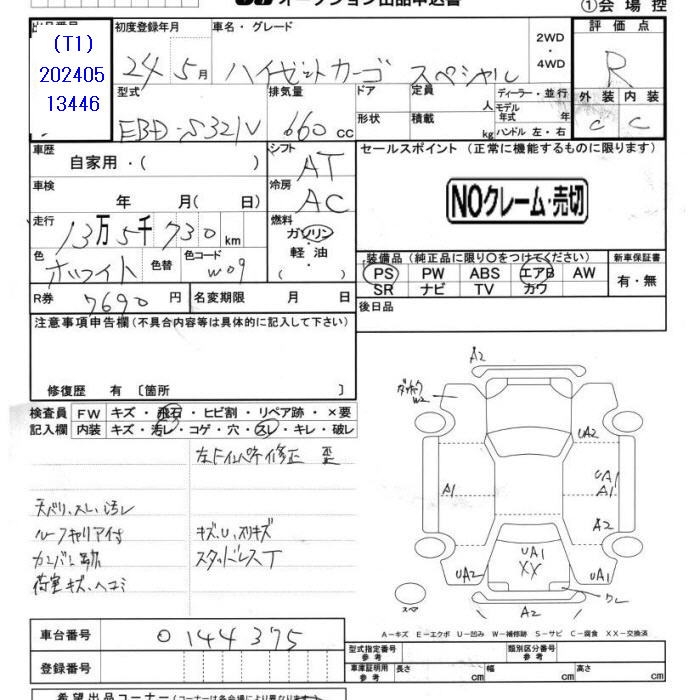 オークション出品申込書
①会場控
出品番号
(T1)
202405
13446
初度登録年月
24年5月
車名・グレード
ハイゼットカーゴ スペシャル
2WD
・
4WD
評価点
R
外装 内装
C C
型式
EBD-S321V
排気量
660cc
ドア
形状
定員
人
積載
kg
ディーラー・並行
モデル年式 年
ハンドル 左・右
車歴
自家用・( )
シフト
AT
車検
年 月( 日)
冷房
AC
走行
13万5千730km
燃料
ガソリン
・
軽油
・
( )
色
ホワイト
色替
色コード
W09
R券
7690円
名変期限 月 日
セールスポイント (正常に機能するものに限ります)
NOクレーム・売切
装備品(純正品に限り○をつけてください)
PS PW ABS エアB AW
SR ナビ TV カワ
新車保証書
有・無
後日品
注意事項申告欄(不具合内容等は具体的に記入して下さい)
修復歴 有 〔箇所 〕
検査員記入欄
FW キズ・飛石・ヒビ割・リペア跡・×要
内装 キズ・汚レ・コゲ・穴・スレ・キレ・破レ
左Fインパネ修正 歪
天バリ、スレ、汚レ
ルーフキャリア付
カンバン跡
荷室キズ、ヘコミ
キズ、U、スリキズ
スタッドレスT
A2
W2
UA2
A1
UA1
A1
A2
UA2
UA1
XX
UA1
スペア
A2
A-キズ E-エクボ U-凹み W-補修跡 S-サビ C-腐食 XX-交換済
車台番号
0144375
登録番号
型式指定番号
参考
類別区分番号
参考
車庫証明用
参考
長さ cm
幅 cm
高さ cm
希望出品コーナー(コーナーは各会場により異なります)